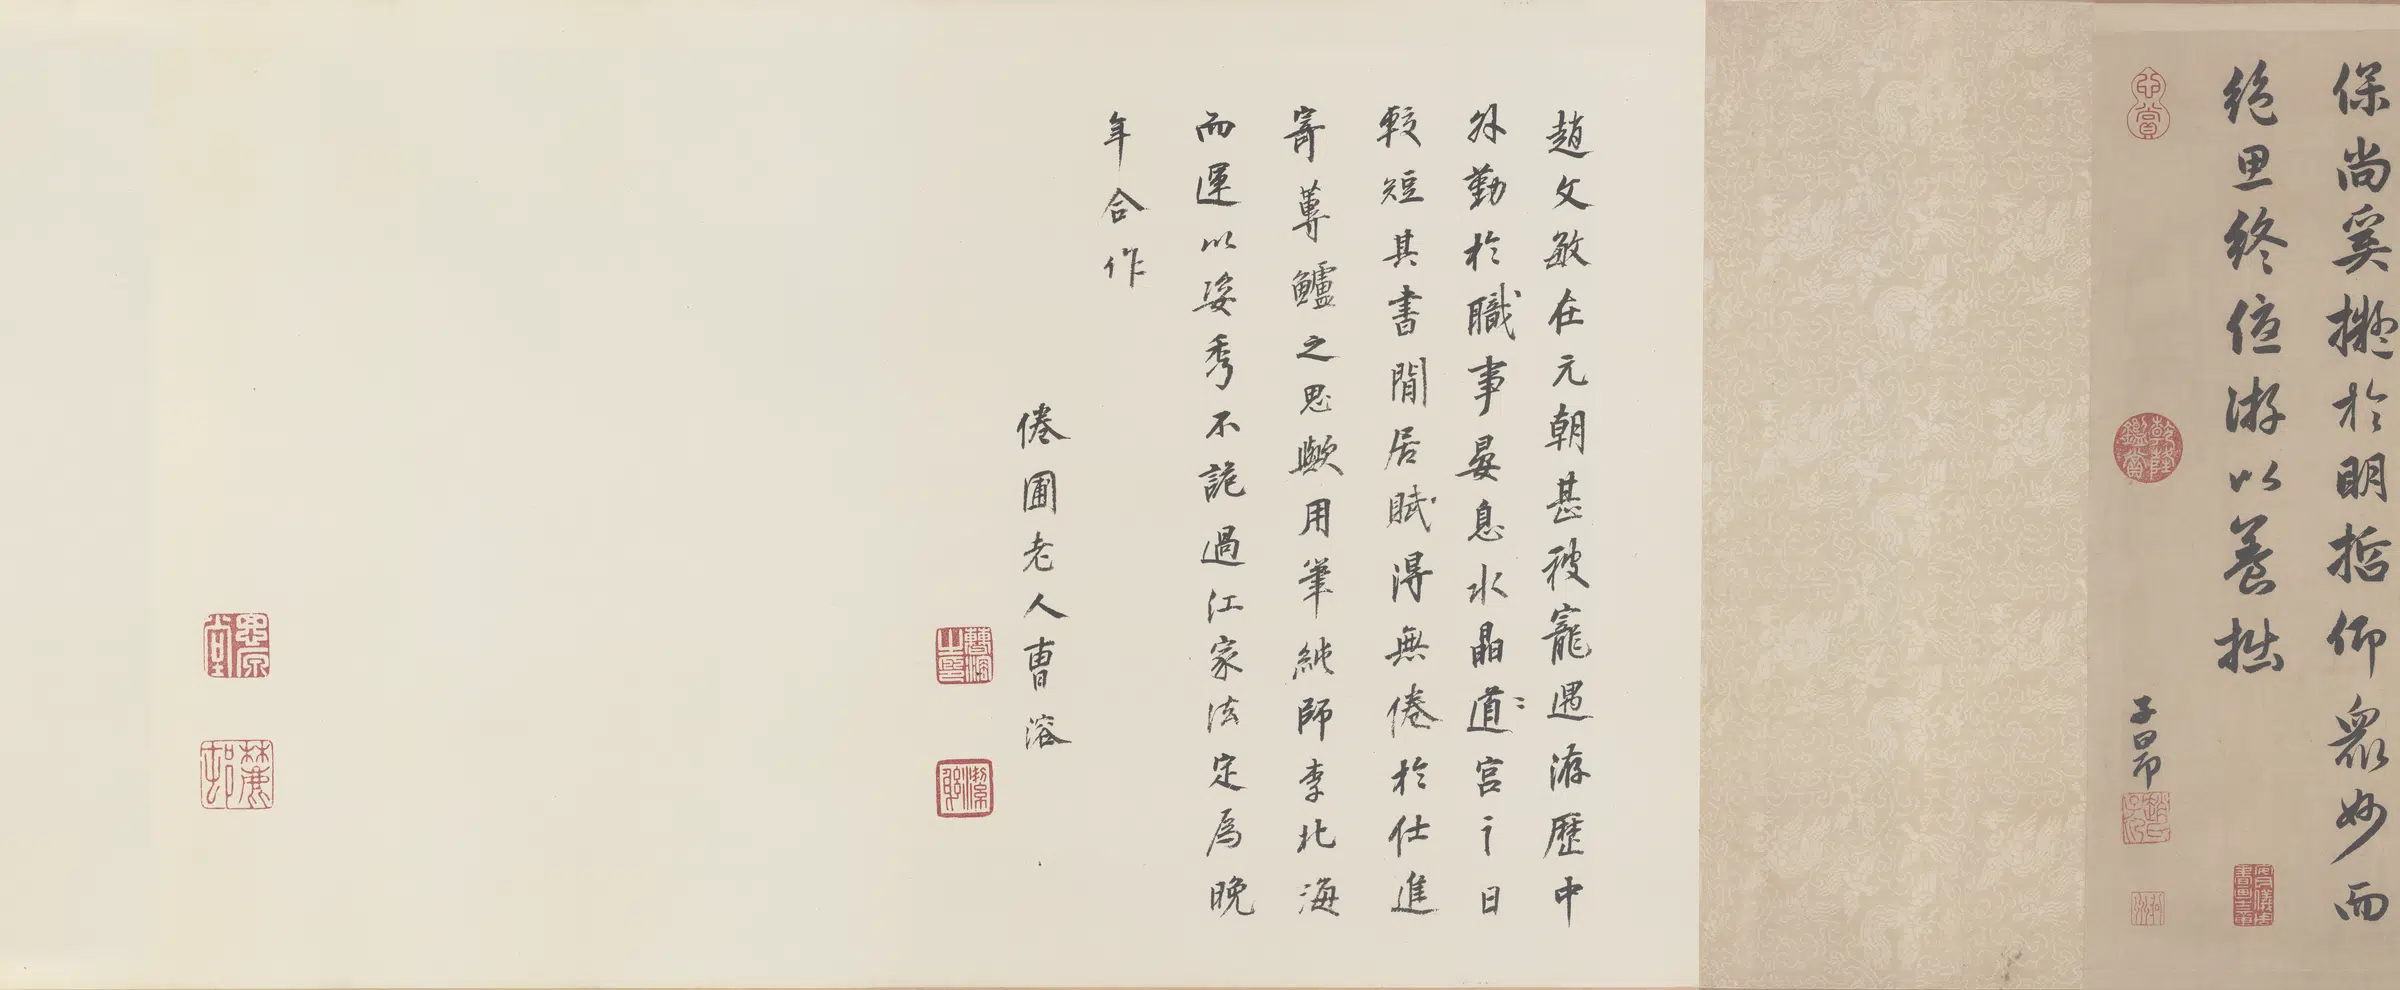 保尚奚擬於明哲仰衆妙而
絶思終優游以養拙
子昂
趙文敏在元朝甚被寵遇游歷中
外勤於職事晏息水晶道宮之日
較短其書閒居賦得無倦於仕進
寄蓴鱸之思歟用筆純師李北海
而運以姿秀不詭過江家法定爲晚
年合作
倦圃老人曹溶
乾隆鑑賞
趙氏子昂
曹溶之印